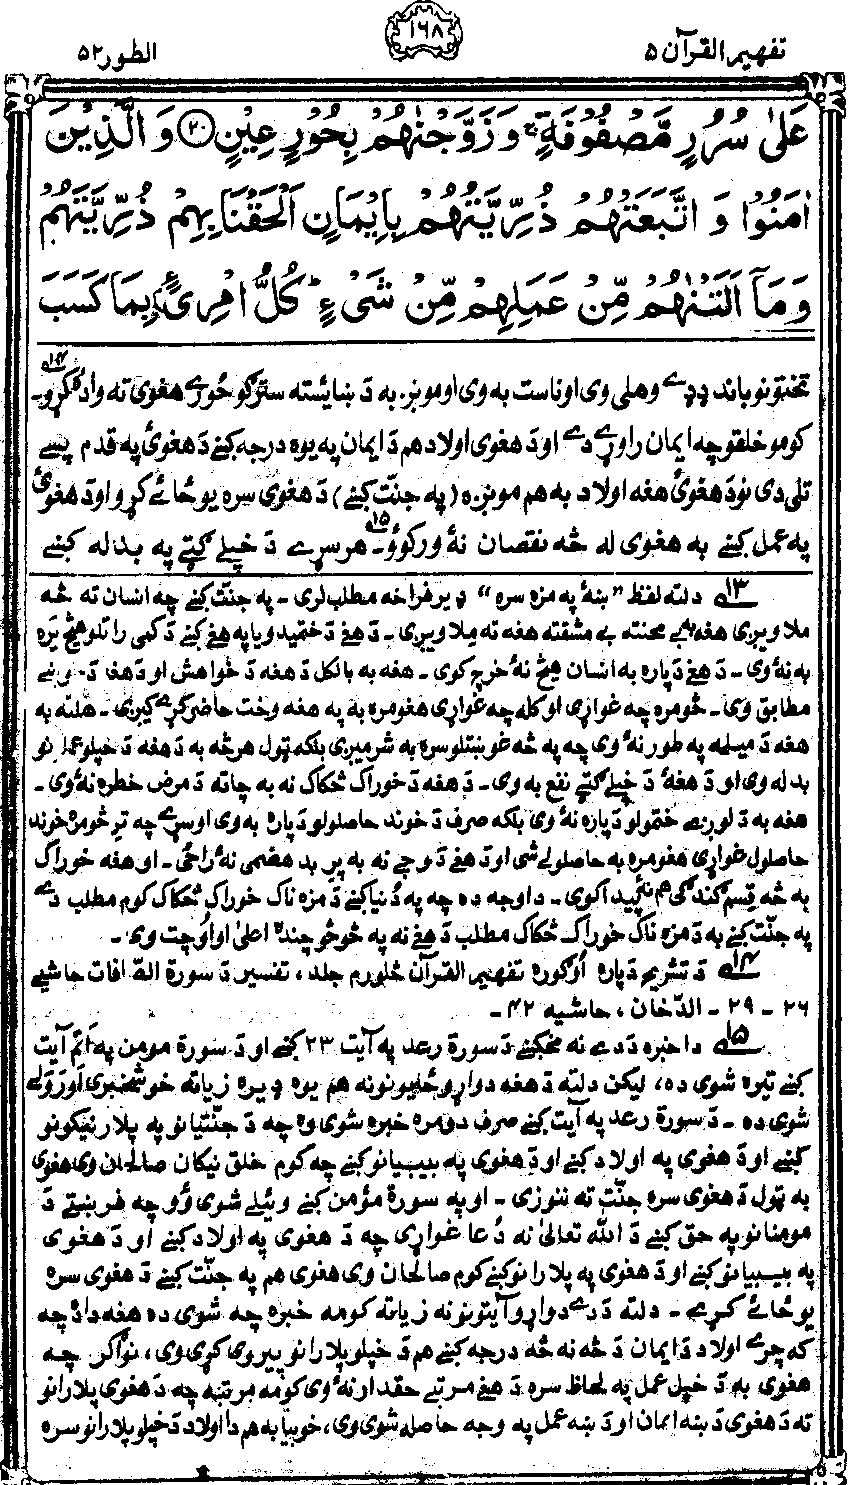 تفهيم القرآن ۵
۱۶۸
الطور ۵۲
عَلٰى سُرُرٍ مَّصْفُوْفَةٍ ۚ وَ زَوَّجْنٰهُمْ بِحُوْرٍ عِيْنٍ ۲۰ وَ الَّذِيْنَ
اٰمَنُوْا وَ اتَّبَعَتْهُمْ ذُرِّيَّتُهُمْ بِاِيْمَانٍ اَلْحَقْنَا بِهِمْ ذُرِّيَّتَهُمْ
وَ مَاۤ اَلَتْنٰهُمْ مِّنْ عَمَلِهِمْ مِّنْ شَىْءٍ ؕ كُلُّ امْرِىءٍۭ بِمَا كَسَبَ
تختونو باندې ډډے وهلی وی اوناست به وی اومونږ. به دَ ښائسته سترګو حُورے هغوی ته وادۀ کړو۔ ۱۴
کومو خلقو چه ایمان راوړے دے اودَ هغوی اولاد هم دَ ایمان په یوه درجه کښے دَ هغوئ په قدم پسے
تلی دی نودَ هغوئ هغه اولاد به هم مونږه (په جنّت کښے) دَ هغوی سره یوځائے کړو اودَ هغوئ
په عمل کښے به هغوی له څه نقصان نۀ ورکوؤ۔ ۱۵ هرسړے دَ خپلے ګټے په بدله کښے
۱۳ دلته لفظ ”ښۀ په مزه سره“ ډیر فراخه مطلب لری۔ په جنّت کښے چه انسان ته څه
ملاویږی هغه به بے محنته بے مشقته هغه ته ملاویږی۔ دَ هغے دَ ختمیدو یا په هغے کښے دَ کمی راتلو هیڅ یَره
به نۀ وی۔ دَ هغے دَپاره به انسان هیڅ نۀ خرچ کوی۔ هغه به بالکل دَ هغه دَ خواهش او دَ هغه دَ
مطابق وی۔ څومره چه غواړی اوکله چه غواړی هغومره به په هغه وخت حاضر کړے کیږی۔ هلته به
هغه دَ میلمه په طور نۀ وی چه په څه غوښتلو سره به شرمیږی بلکه ټول هرڅه به دَ هغه دَ خپلو عملونو
بدله وی او دَ هغۀ دَ خپلے ګټے نفع به وی۔ دَ هغه دَ خوراک څکاک نه به چاته دَ مرض خطره نۀ وی۔
هغه به دَ لوږے ختمولو دَپاره نۀ وی بلکه صرف دَ خوند حاصلولو دَپاره به وی اوسړے چه ترِ څومره خوند
حاصلول غواړی هغومره به حاصلولے شی اودَ هغے دَ وجے نه به پرِ بد هضمی نۀ راځی۔ اوهغه خوراک
به څه قِسم ګندګی هم نۀ پیدا کوی۔ دا وجه ده چه په دُنیا کښے دَ مزه ناک خوراک څکاک کوم مطلب دے
په جنّت کښے به دَ مزه ناک خوراک څکاک مطلب دَ هغے نه په څو څو چنده اعلیٰ او اُوچت وی۔
۱۴ دَ تشریح دَپاره اُوګوره تفهیم القرآن څلورم جلد، تفسیر دَ سورة الصّافات حاشیے
۲۶ ۔ ۲۹ ۔ الدّخان، حاشیه ۴۲ ۔
۱۵ داخبره دَدے نه مخکښے دَ سورة رعد په آیت ۲۳ کښے او دَ سورة مومن په اَتَم آیت
کښے تیره شوی ده، لیکن دلته دَ هغه دواړو ځایونو نه هم یوه ډیره زیاته خوشخبری اَورَوَلے
شوی ده ۔ دَ سورة رعد په آیت کښے صرف دومره خبره شوی وه چه دَ جنّتیانو په پلار نیکونو
کښے اودَ هغوی په اولاد کښے اودَ هغوی په بیبیانو کښے چه کوم خلق نیکان صالحان وی هغوی
به ټول دَ هغوی سره جنّت ته ننوزی۔ اوپه سورة مؤمن کښے وئیلے شوی وُو چه فرښتے دَ
مومنانو په حق کښے دَ الله تعالیٰ نه دُعا غواړی چه دَ هغوی په اولاد کښے او دَ هغوی
په بیبیانو کښے اودَ هغوی په پلارانو کښے کوم صالحان وی هغوی هم په جنّت کښے دَ هغوی سره
یوځائے کړے ۔ دلته دَ دے دواړو آیتونو نه زیاته کومه خبره چه شوی ده هغه دا ده چه
که چرے اولاد دَ ایمان دَ څه نه څه درجه کښے هم دَ خپلو پلارانو پیروی کړی وی، نو اګر چه
هغوی به دَ خپل عمل په لحاظ سره دَ هغے مرتبے حقدار نۀ وی کومه مرتبه چه دَ هغوی پلارانو
ته دَ هغوی دَ ښه ایمان او دَ ښه عمل په وجه حاصله شوی وی، خو بیا به هم دا اولاد دَ خپلو پلارانو سره